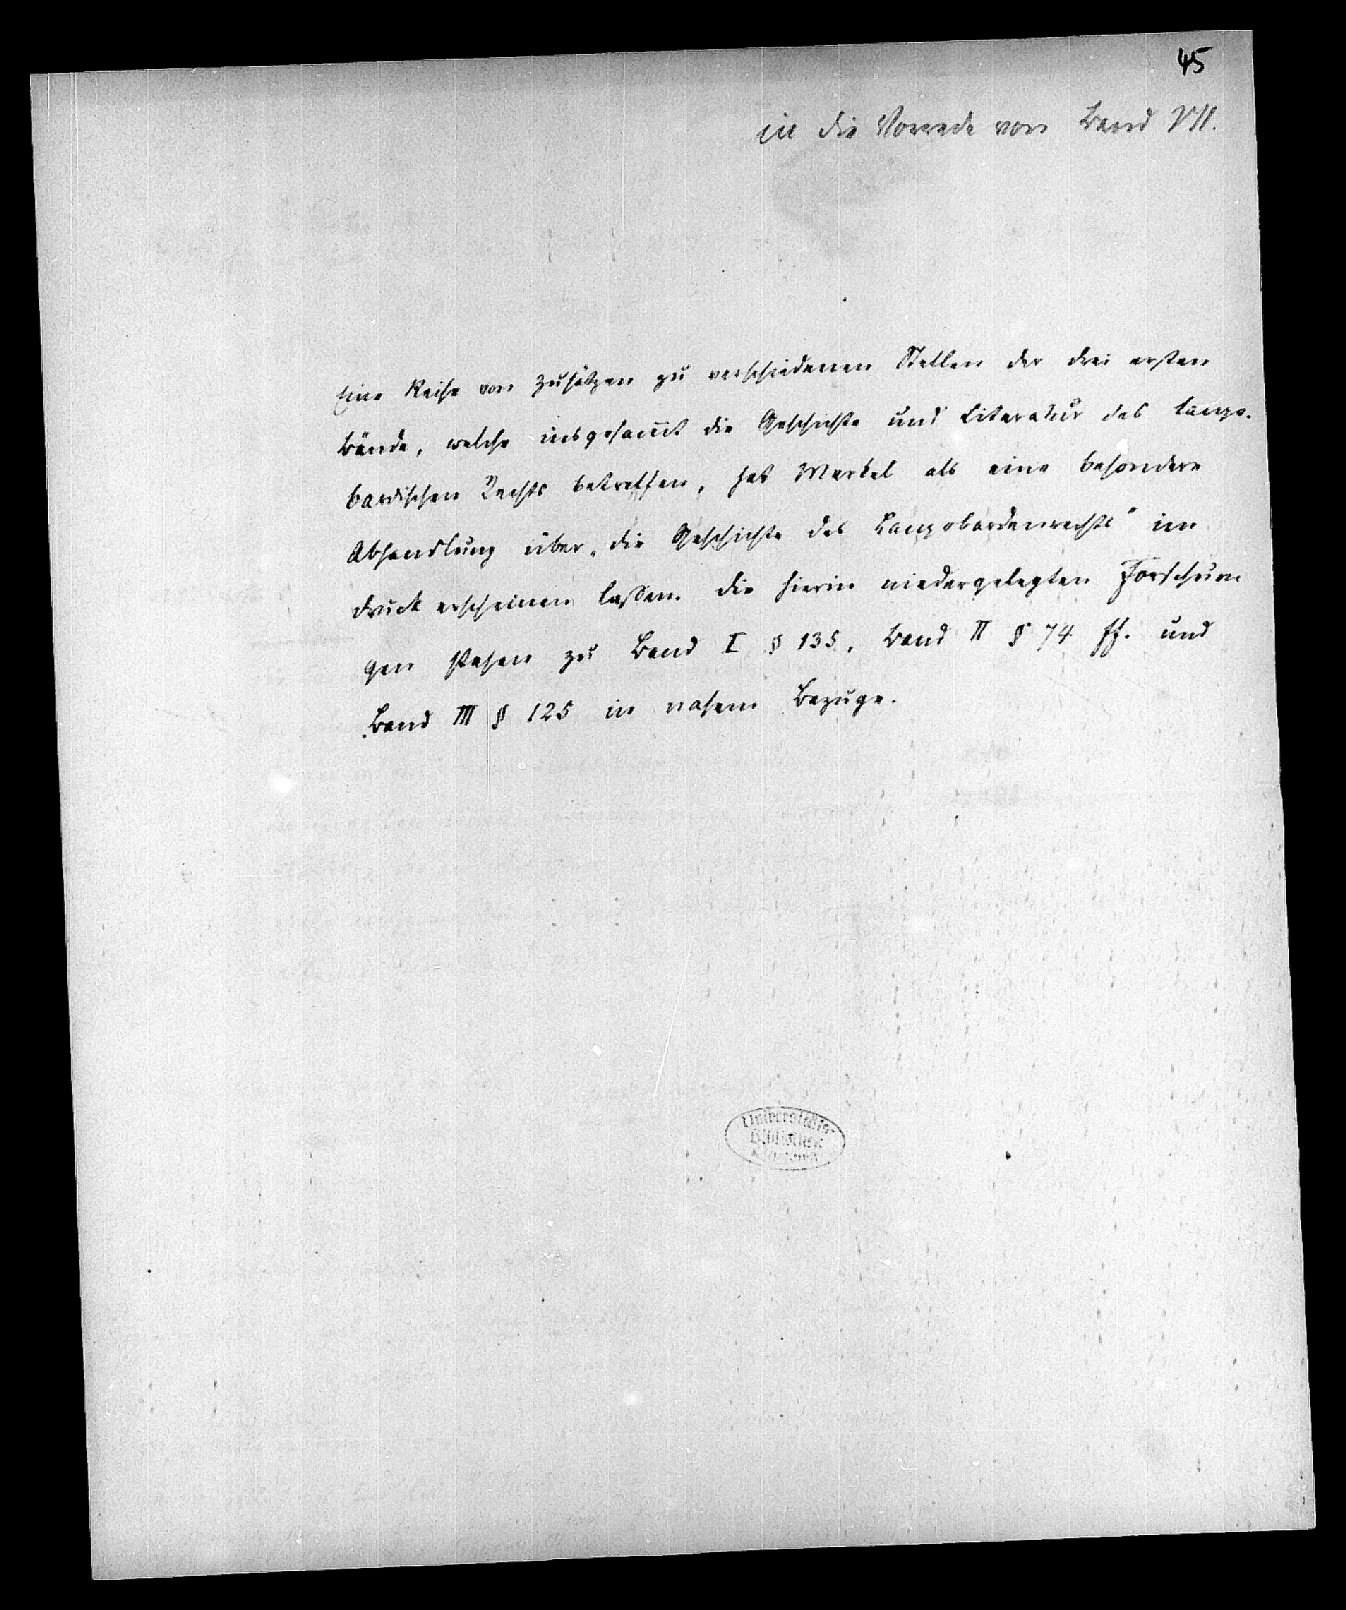 45
in die Vorrede von Band VII.
Eine Reihe von Zusätzen zu verschiedenen Stellen der drei ersten
Bände, welche insgesammt die Geschichte und Literatur des lango-
bardischen Rechts betreffen, hat Merkel als eine besondere
Abhandlung über „die Geschichte des Langobardenrechts" im
Druck erscheinen lassen. Die hierin niedergelegten Forschun
gen stehen zu Band I § 135, Band II § 74 ff. und
Band III § 125 in nahem Bezuge.
Universitäts-
Bibliothek